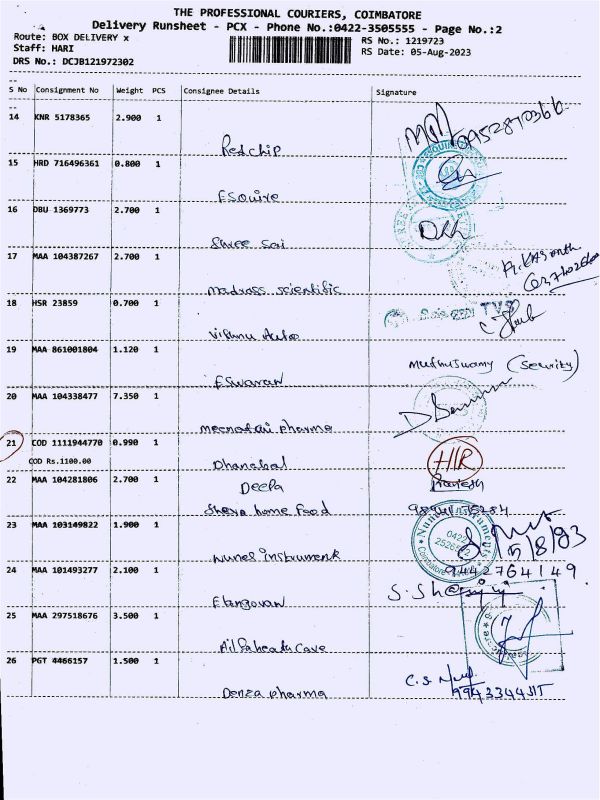 THE PROFESSIONAL COURIERS, COIMBATORE
Delivery Runsheet - PCX - Phone No.:0422-3505555 - Page No.:2
Route: BOX DELIVERY x
RS No.: 1219723
Staff: HARI
RS Date: 05-Aug-2023
DRS No.: DCJB121972302
S No Consignment No Weight PCS Consignee Details Signature
14 KNR 5178365 2.900 1
Redchip
15 HRD 716496361 0.800 1
Esquire
16 DBU 1369773 2.700 1
Shree Sai
17 MAA 104387267 2.700 1
Madrass scientific
18 HSR 23859 0.700 1
Vishnu Auto
19 MAA 861001804 1.120 1
Muthuswamy (Security)
Eswaran
20 MAA 104338477 7.350 1
Meenatai pharma
21 COD 1111944770 0.990 1
HIR
COD Rs.1100.00
Dhanabal
22 MAA 104281806 2.700 1
Deepa
home Food
23 MAA 103149822 1.900 1
5/8/93
Nunes instrument
9442764149
24 MAA 101493277 2.100 1
Elangovan
25 MAA 297518676 3.500 1
26 PGT 4466157 1.500 1
Denza pharma